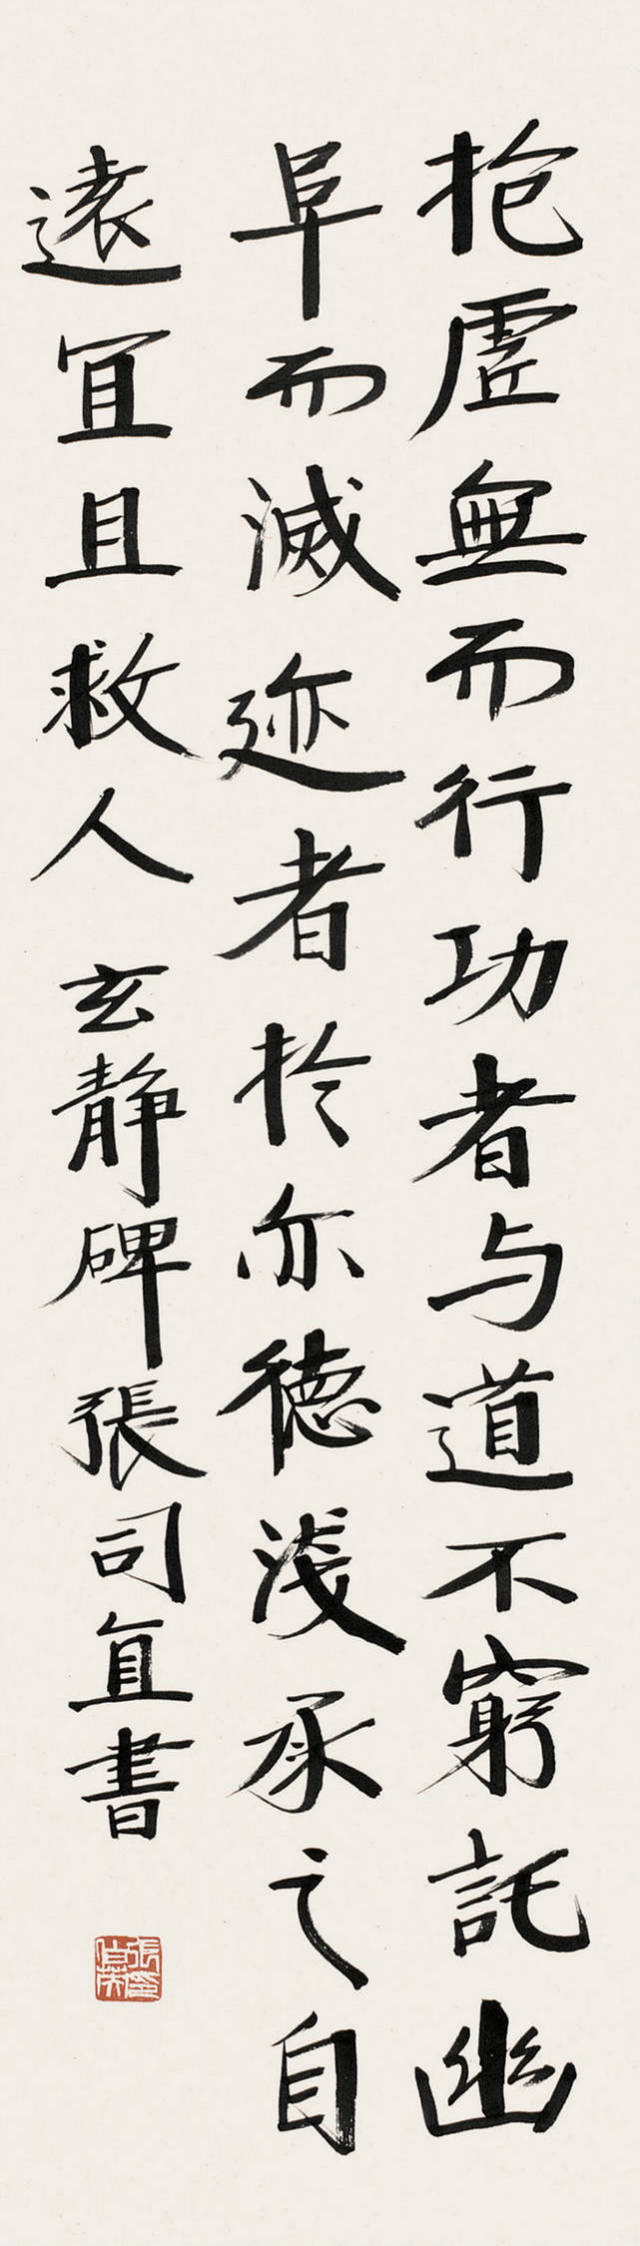 抢虚無而行功者与道不窮託幽
阜而滅迹者於亦德淺承之自
遠宜且救人 玄静碑張司直書